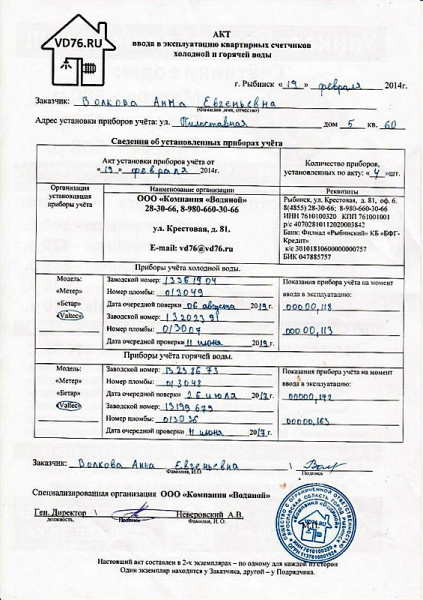 VD76.RU
АКТ
ввода в эксплуатацию квартирных счетчиков
холодной и горячей воды
г. Рыбинск «19» февраля 2014г.
Заказчик: Волкова Анна Евгеньевна
(Фамилия, имя, отчество)
Адрес установки приборов учёта: ул. дом 5 кв. 60
Сведения об установленных приборах учёта
Акт установки приборов учёта от
«19» февраля 2014г.
Количество приборов,
установленных по акту: «4»шт.
Организация
установившая
приборы учёта
Наименование организации
ООО «Компания «Водяной»
28-30-66, 8-980-660-30-66
ул. Крестовая, д. 81.
E-mail: vd76@vd76.ru
Реквизиты
Рыбинск, ул. Крестовая, д. 81, оф. 6.
8(4855) 28-30-66; 8-980-660-30-66
ИНН 7610100320 КПП 761001001
р/с 40702810112020003842
Банк: Филиал «Рыбинский» КБ «БФГ-
Кредит»
к/с 30101810600000000757
БИК 047885757
Приборы учёта холодной воды.
Модель:
«Метер»
«Бетар»
«Valtec»
Заводской номер: 13361904
Номер пломбы: 013049
Дата очередной поверки 06 августа 2019г.
Заводской номер: 13202391
Номер пломбы: 013007
Дата очередной проверки 11 июня 2019г.
Показания прибора учёта на момент
ввода в эксплуатацию:
00000,118
00000,113
Приборы учёта горячей воды.
Модель:
«Метер»
«Бетар»
«Valtec»
Заводской номер: 13238673
Номер пломбы: 013048
Дата очередной поверки 26 июля 2017г.
Заводской номер: 13199679
Номер пломбы: 013036
Дата очередной поверки 11 июня 2017г.
Показания прибора учёта на момент
ввода в эксплуатацию:
00000,172
00000,163
Заказчик: Волкова Анна Евгеньевна
Фамилия, И. О.
Подпись
Специализированная организация ООО «Компания «Водяной»
Ген. Директор Неверовский А.В.
должность. Подпись Фамилия, И.О.
Настоящий акт составлен в 2-х экземплярах – по одному для каждой из сторон
Один экземпляр находится у Заказчика, другой – у Подрядчика.